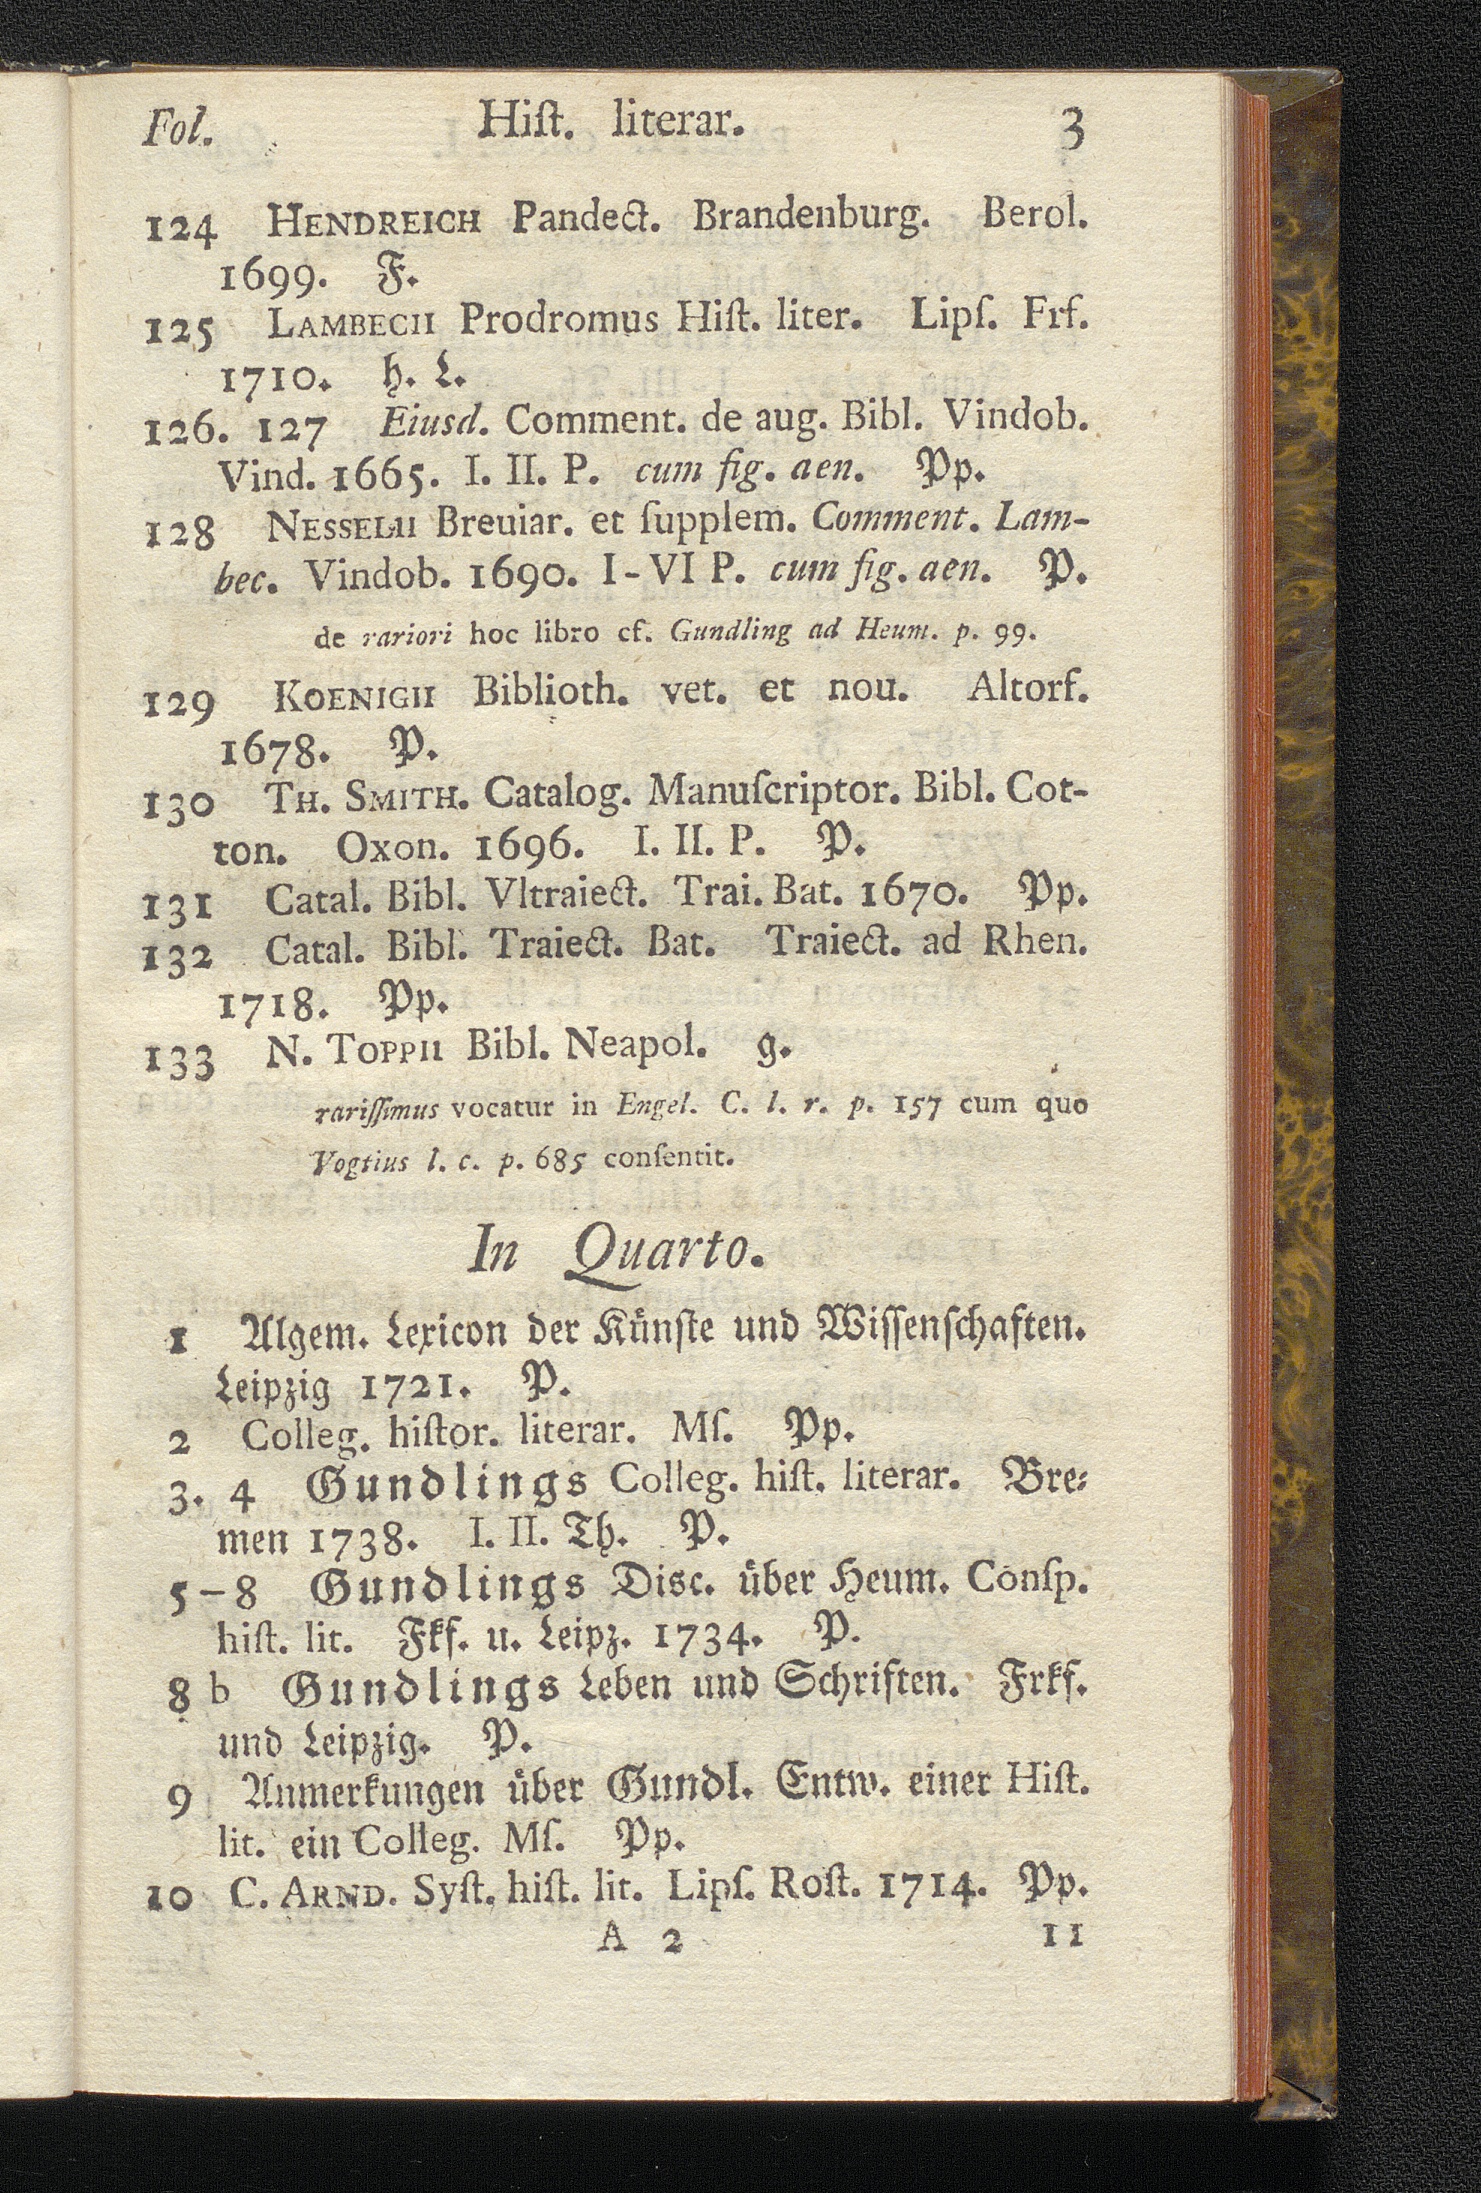 Fol. Hiſt. literar. 3
124 HENDREICH Pandect. Brandenburg. Berol.
1699. F.
125 LAMBECII Prodromus Hiſt. liter. Lipſ. Frf.
1710. h. L.
126. 127 Eiusd. Comment. de aug. Bibl. Vindob.
Vind. 1665. I. II. P. cum fig. aen. Pp.
128 NESSELII Breuiar. et ſupplem. Comment. Lam-
bec. Vindob. 1690. I-VI P. cum fig. aen. P.
de rariori hoc libro cf. Gundling ad Heum. p. 99.
129 KOENIGII Biblioth. vet. et nou. Altorf.
1678. P.
130 TH. SMITH. Catalog. Manuſcriptor. Bibl. Cot-
ton. Oxon. 1696. I. II. P. P.
131 Catal. Bibl. Vltraiect. Trai. Bat. 1670. Pp.
132 Catal. Bibl. Traiect. Bat. Traiect. ad Rhen.
1718. Pp.
133 N. TOPPII Bibl. Neapol. g.
rariſſimus vocatur in Engel. C. l. r. p. 157 cum quo
Vogtius l. c. p. 685 conſentit.
In Quarto.
1 Algem. Lexicon der Künſte und Wiſſenſchaften.
Leipzig 1721. P.
2 Colleg. hiſtor. literar. Mſ. Pp.
3. 4 Gundlings Colleg. hiſt. literar. Bre-
men 1738. I. II. Th. P.
5-8 Gundlings Disc. über Heum. Conſp.
hiſt. lit. Fkf. u. Leipz. 1734. P.
8 b Gundlings Leben und Schriften. Frkf.
und Leipzig. P.
9 Anmerkungen über Gundl. Entw. einer Hiſt.
lit. ein Colleg. Mſ. Pp.
10 C. ARND. Syſt. hiſt. lit. Lipſ. Roſt. 1714. Pp.
A 2 11